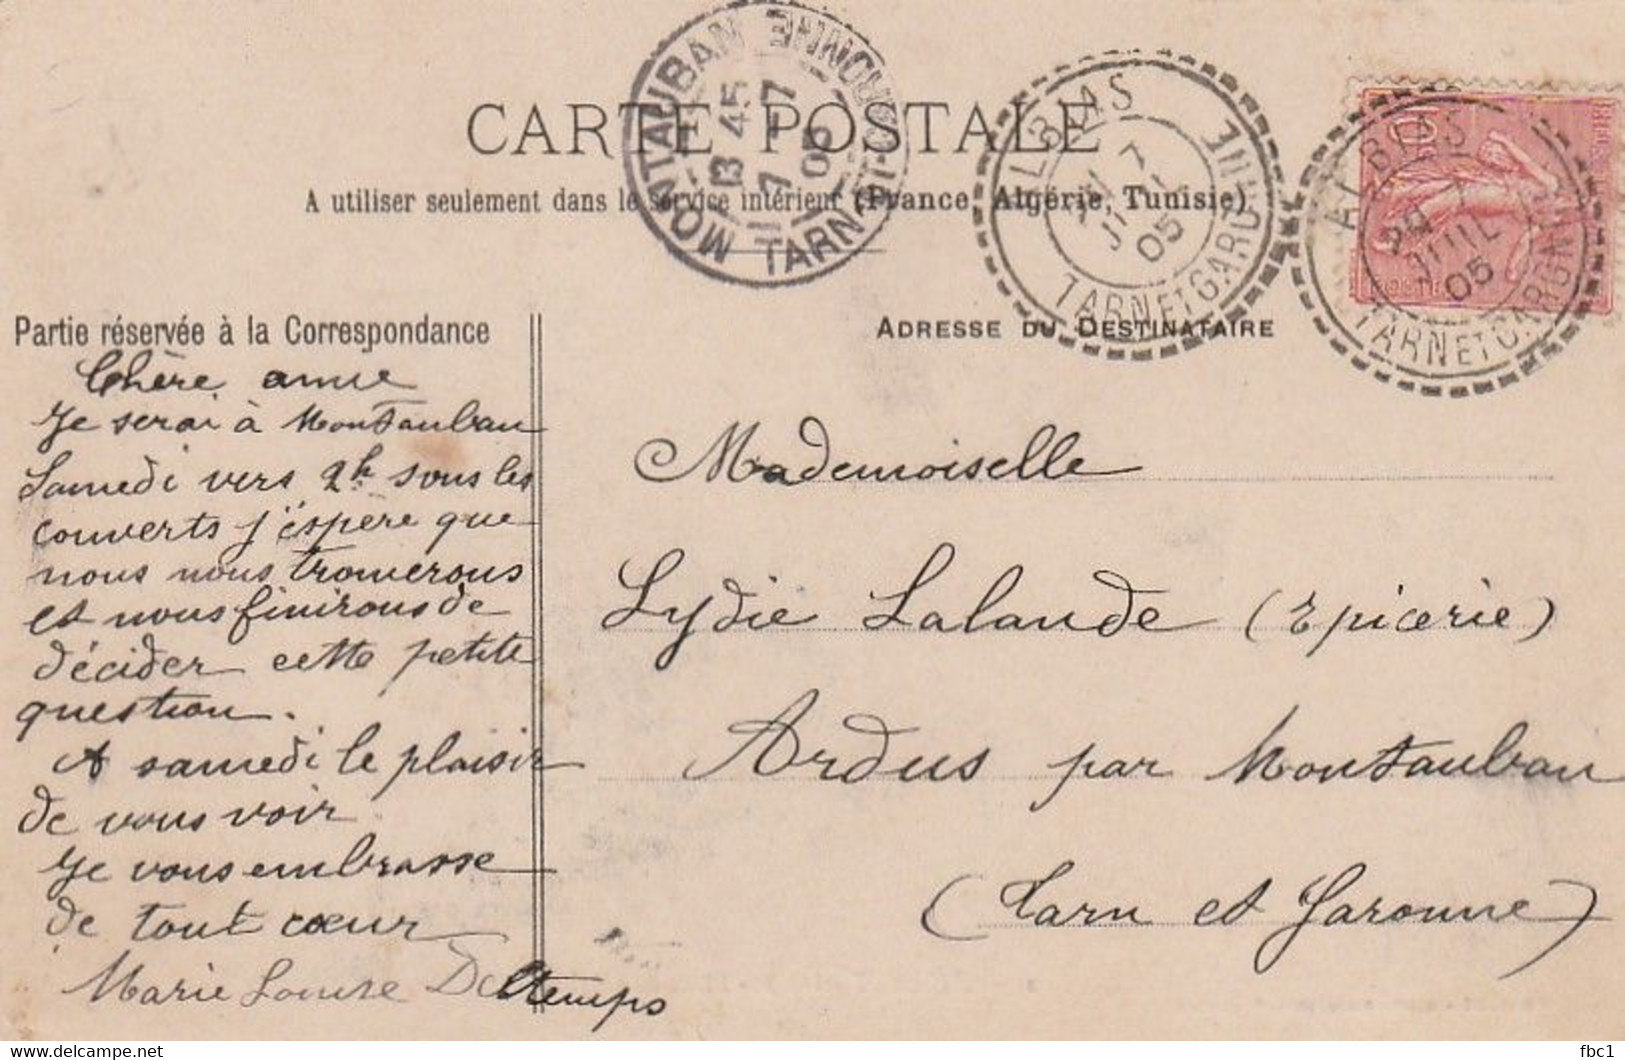 CARTE POSTALE
A utiliser seulement dans le service intérieur (France, Algérie, Tunisie)
MONTAUBAN
13 45
7 - 7
05
TARN-ET-GARONNE
ALBIAS
7
JUIL
05
TARN ET GARONNE
ALBIAS
7
JUIL
05
TARN ET GARONNE
10
POSTES
Partie réservée à la Correspondance
ADRESSE DU DESTINATAIRE
Chère amie
Je serai à Montauban
Samedi vers 2h sous les
couverts j'éspère que
nous nous trouverons
et nous finirons de
décider cette petite
question.
A samedi le plaisir
de vous voir
Je vous embrasse
de tout cœur
Marie Louise Deltemps
Mademoiselle
Lydie Lalande (Epicerie)
Ardus par Montauban
(Tarn et Garonne)
www.delcampe.net
fbc1